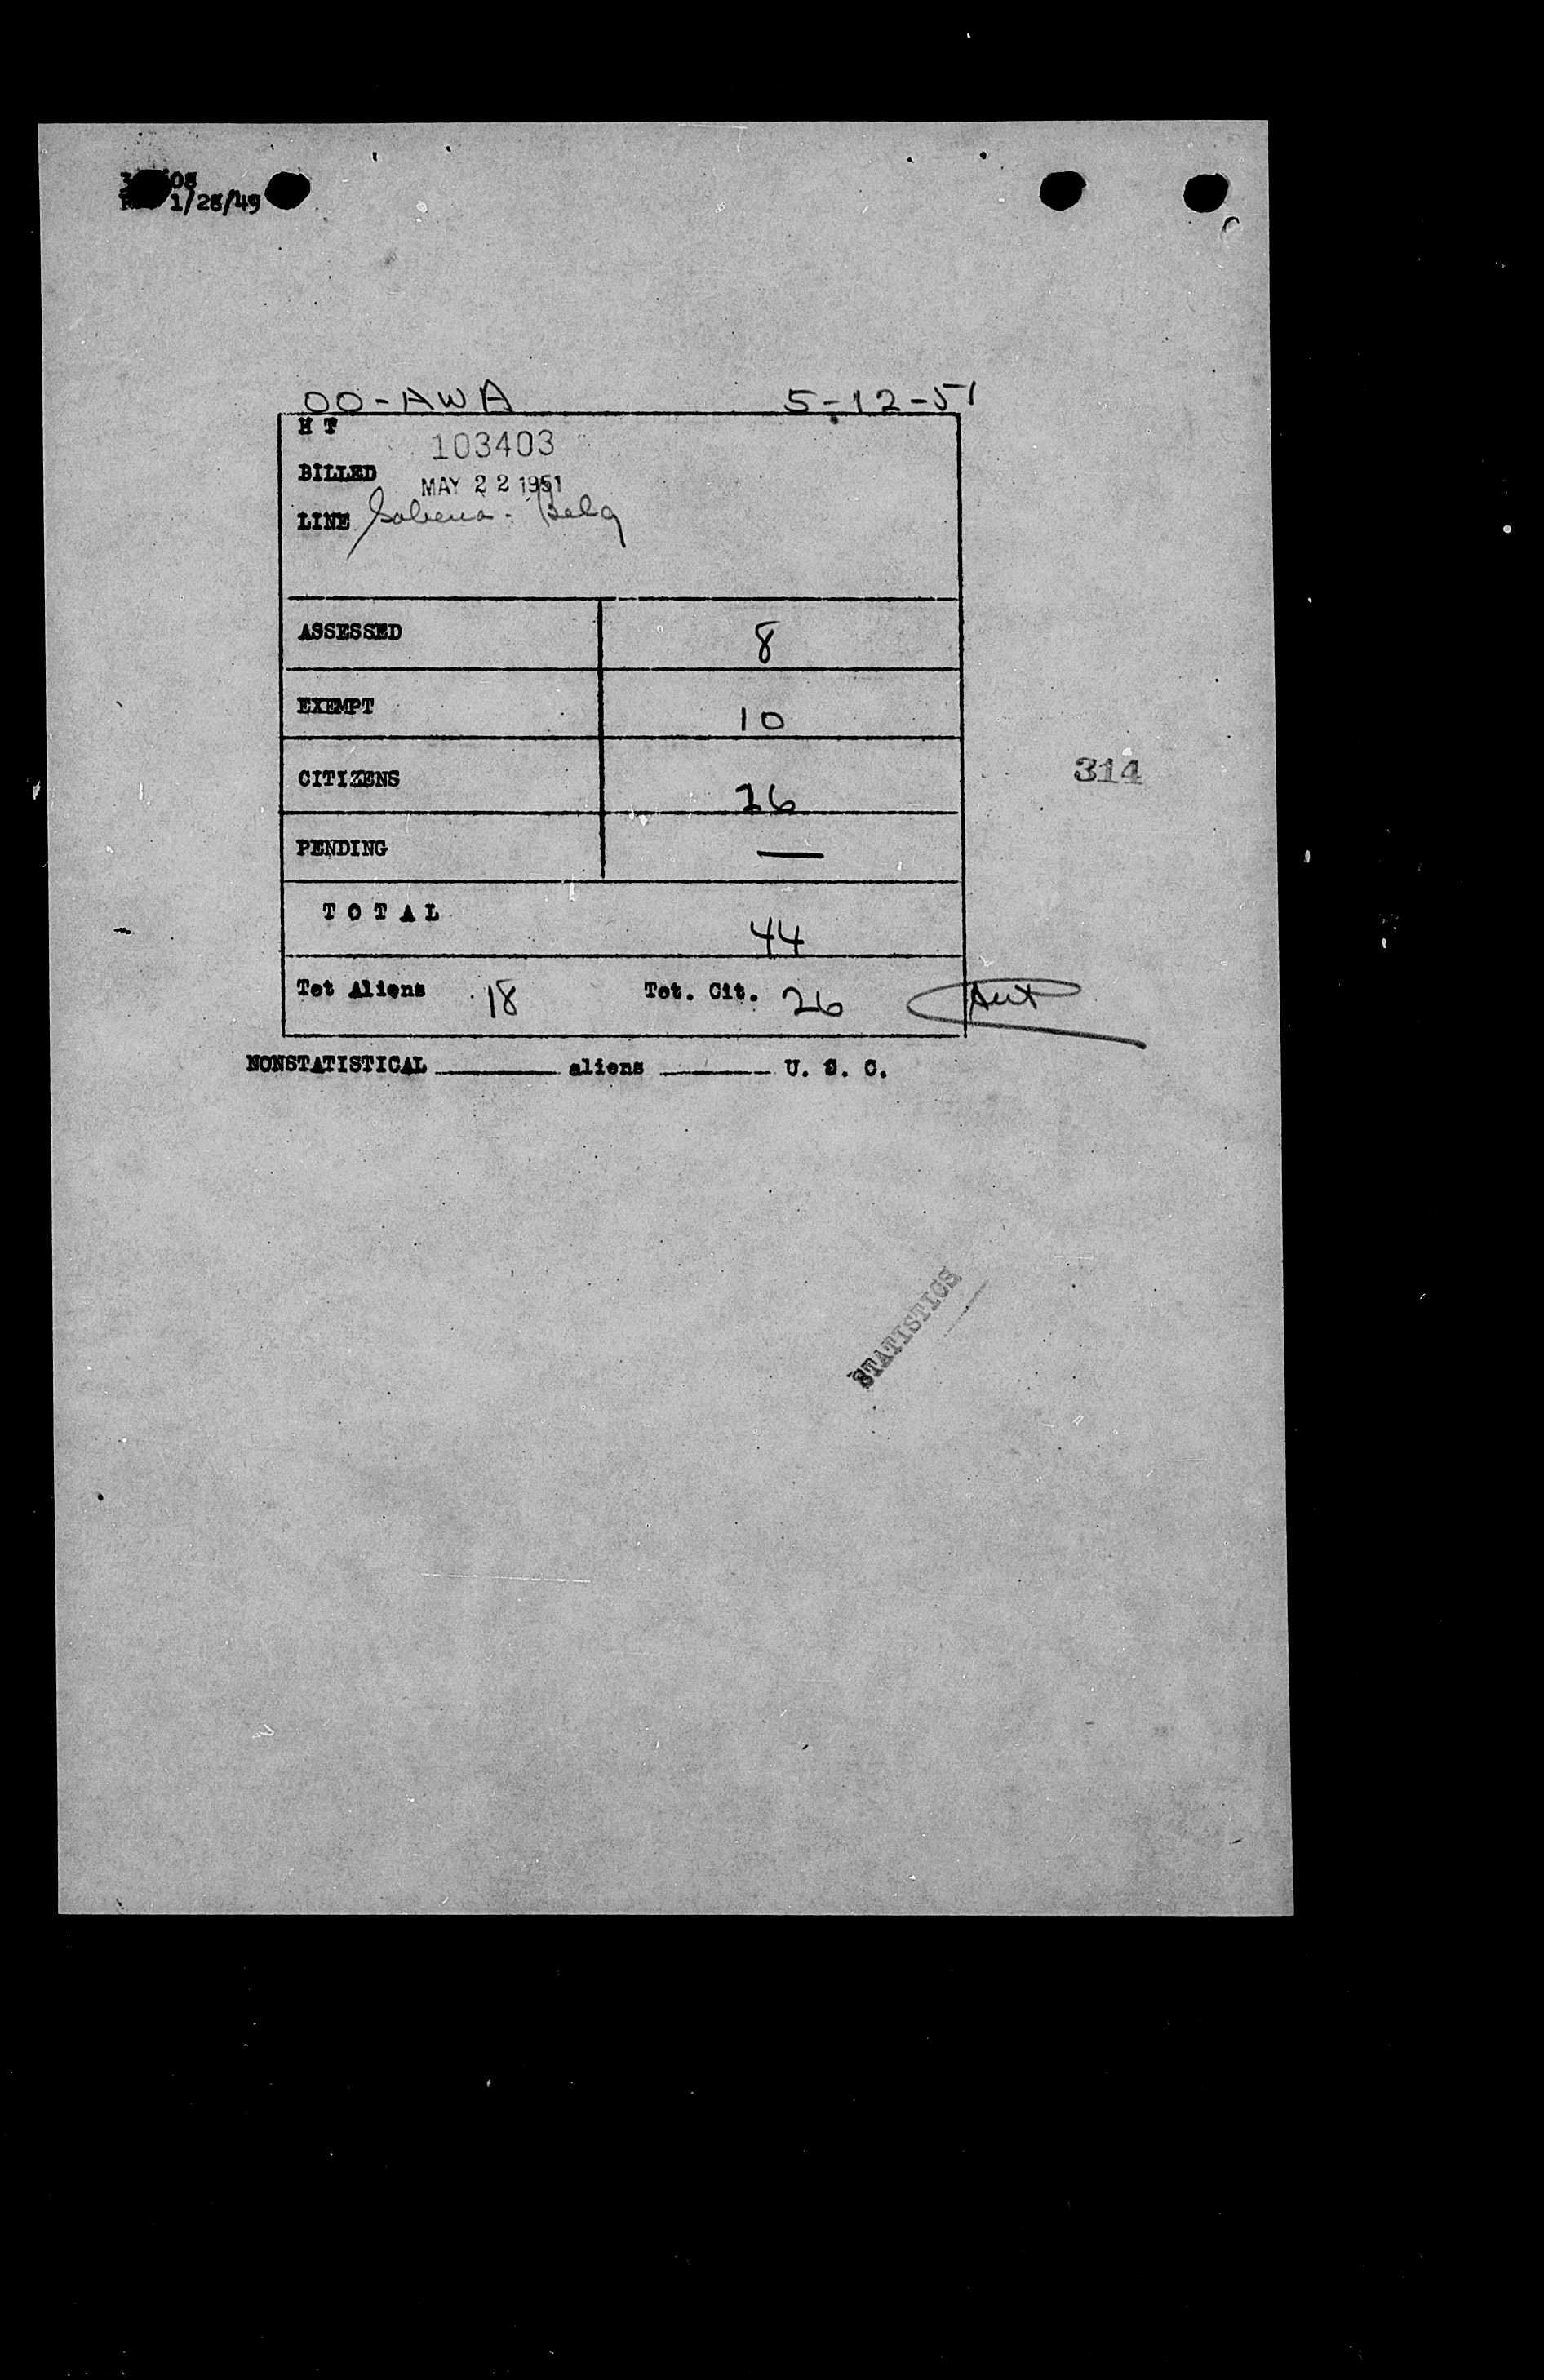 1/28/49
OO-AWA 5-12-51
H T
103403
BILLED
MAY 22 1951
LINE Sabena - Belg
ASSESSED 8
EXEMPT 10
CITIZENS 26
314
PENDING —
TOTAL 44
Tot Aliens 18 Tot. Cit. 26
NONSTATISTICAL ______ aliens ______ U. S. C.
STATISTICS